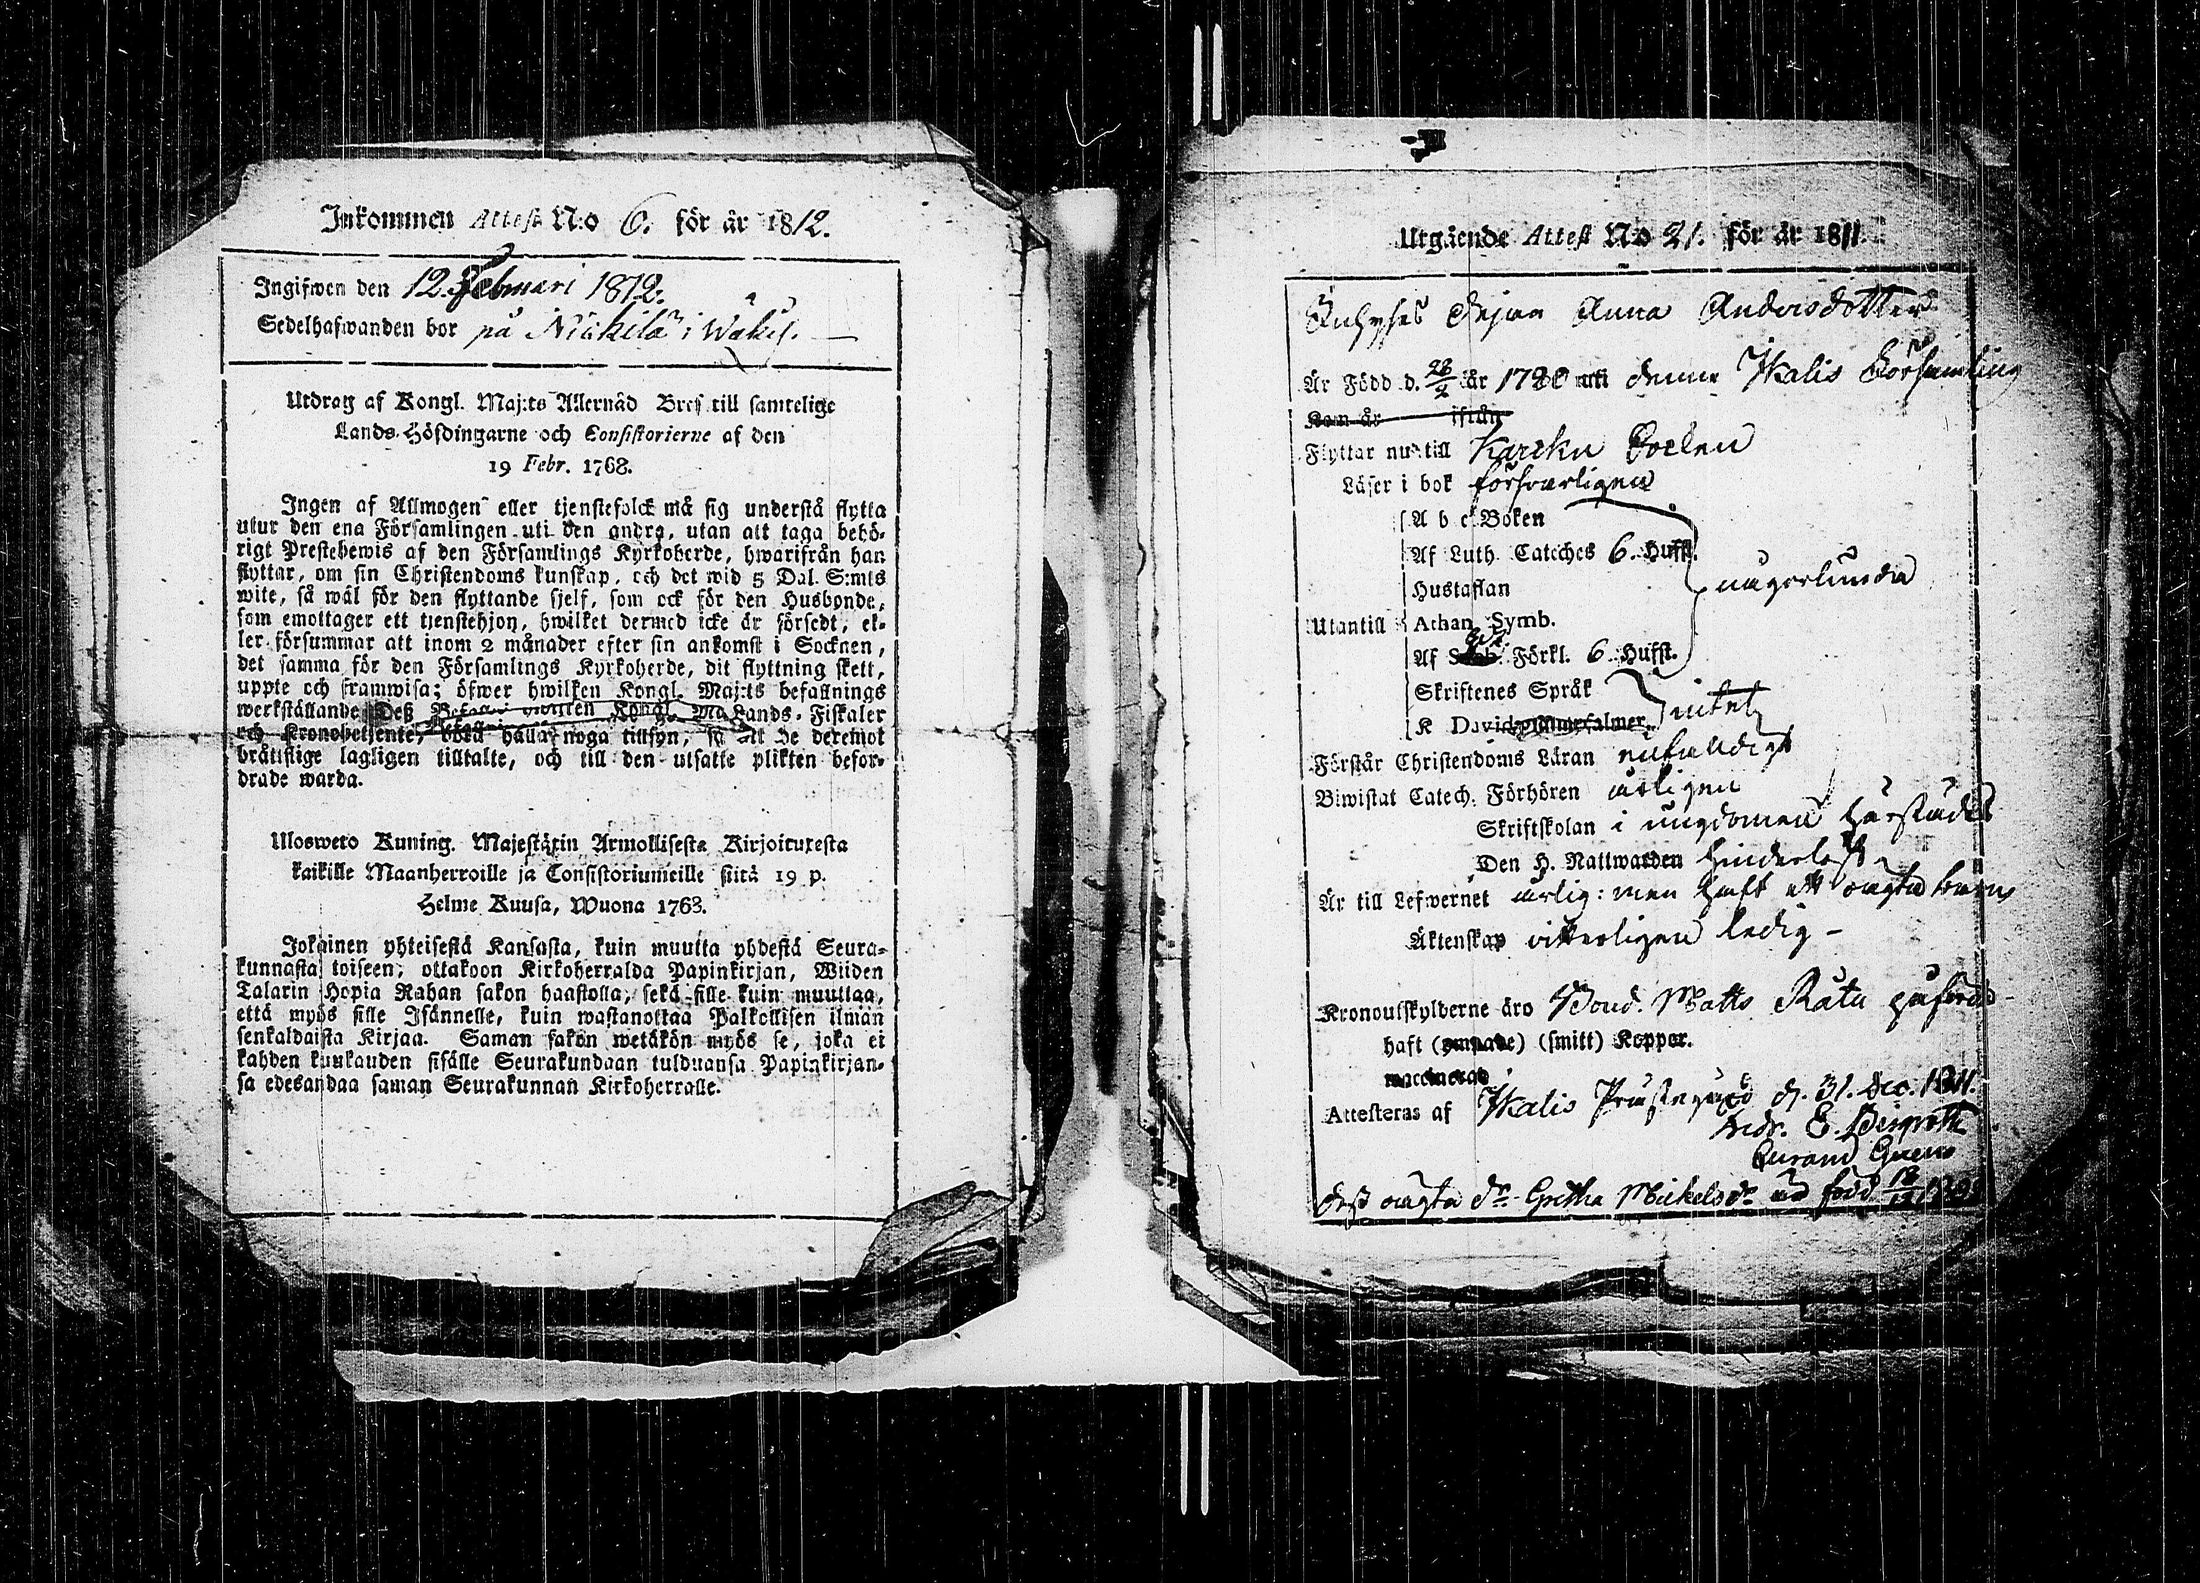 Inkommen Attest N:o 6. för år 1812.
Ingifwen den 12. Februari 1812.
Sedelhafwanden bor på Nickilä i Wäkis.
Utdrag af Kongl. Maj:ts Allernåd Bref till samtelige
Lands-Höfdingarne och Consistorierne af den
19 Febr. 1768.
Ingen af Allmogen eller tjenstefolck må sig understå flytta
utur den ena Församlingen uti den andra, utan att taga behö-
rigt Prestebewis af den Församlings Kyrkoherde, hwarifrån han
flyttar, om sin Christendoms kunskap, och det wid 5 Dal. S:mts
wite, så wäl för den flyttande sjelf, som ock för den Husbonde,
som emottager ett tjenstehjon, hwilket dermed icke är försedt, el-
ler försummar att inom 2 månader efter sin ankomst i Socknen,
det samma för den Församlings Kyrkoherde, dit flyttning skett,
uppte och framwisa; öfwer hwilken Kongl. Maj:ts befallnings
werkställande Deß Lands-Fiskaler
och Kronobetjente, böra hålla noga tillsyn, så att de deremot
bråttslige lagligen tilltalte, och till den utsatte plikten befor-
drade warda.
Uloswето Kuning. Majestätin Armollisesta Kirjoituxesta
kaikille Maanherroille ja Consistoriumeille siitä 19 p.
Helme Kuusa, Wuona 1763.
Jokainen yhteisestä Kansasta, kuin muutta yhdestä Seura-
kunnasta toiseen, ottakoon Kirkoherralda Papinkirjan, Wiiden
Talarin Hopia Rahan sakon haastolla, sekä sille kuin muuttaa,
että myös sille Isännelle, kuin wastanottaa Palkollisen ilman
senkaldaista Kirjaa. Saman sakon wetäkön myös se, joka ei
kahden kuukauden sisälle Seurakundaan tulduansa Papinkirjan-
sa edesandaa saman Seurakunnan Kirkoherralle.
Utgående Attest N:o 21. för år 1811.
Inhyses Pigan Anna Andersdotter
Är Född d. 28/2 år 1780 uti denna Ikalis Församling
Kom år ifrån
Flyttar nu till Karcku Socken
Läser i bok försvarligen
A b c Boken
Af Luth. Cateches 6. Hufst.
Hustaflan
någorlunda
Utantill Athan. Symb.
Af Förkl. 6 Hufst.
Skriftenes Språk
intet
K Davids
Förstår Christendoms Läran enfaldigt
Biwistat Catech. Förhören årligen
Skriftskolan i ungdomen härstädes
Den H. Nattwarden hinderlöst
Är till Lefwernet ärlig: men haft ett oägta barn
Äktenskap vitterligen ledig -
Kronoutskylderne äro Bond. Matts Rätu påförd-
haft (ympade) (smitt) Koppor.
vaccinerad
Attesteras af Ikalis Prästegård d. 31. Dec. 1811.
Andr. E. Bergroth
dess oägta dr. Gretha Mickelsdr. född